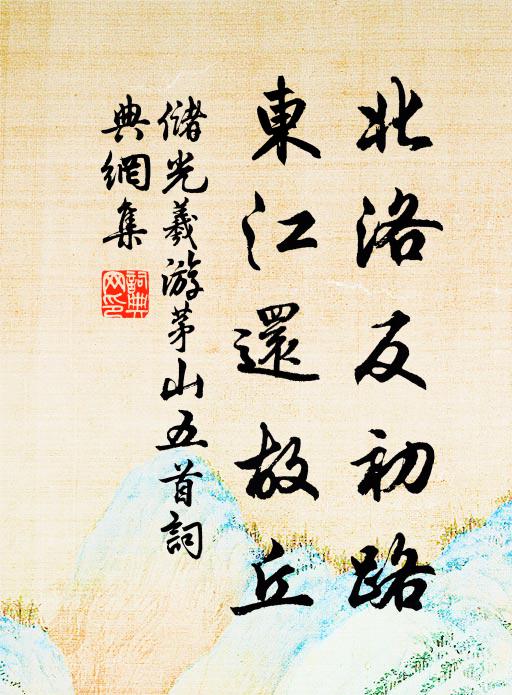 北洛反初路
東江還故丘
儲光羲游茅山五首詞
典網集
詞典
网印